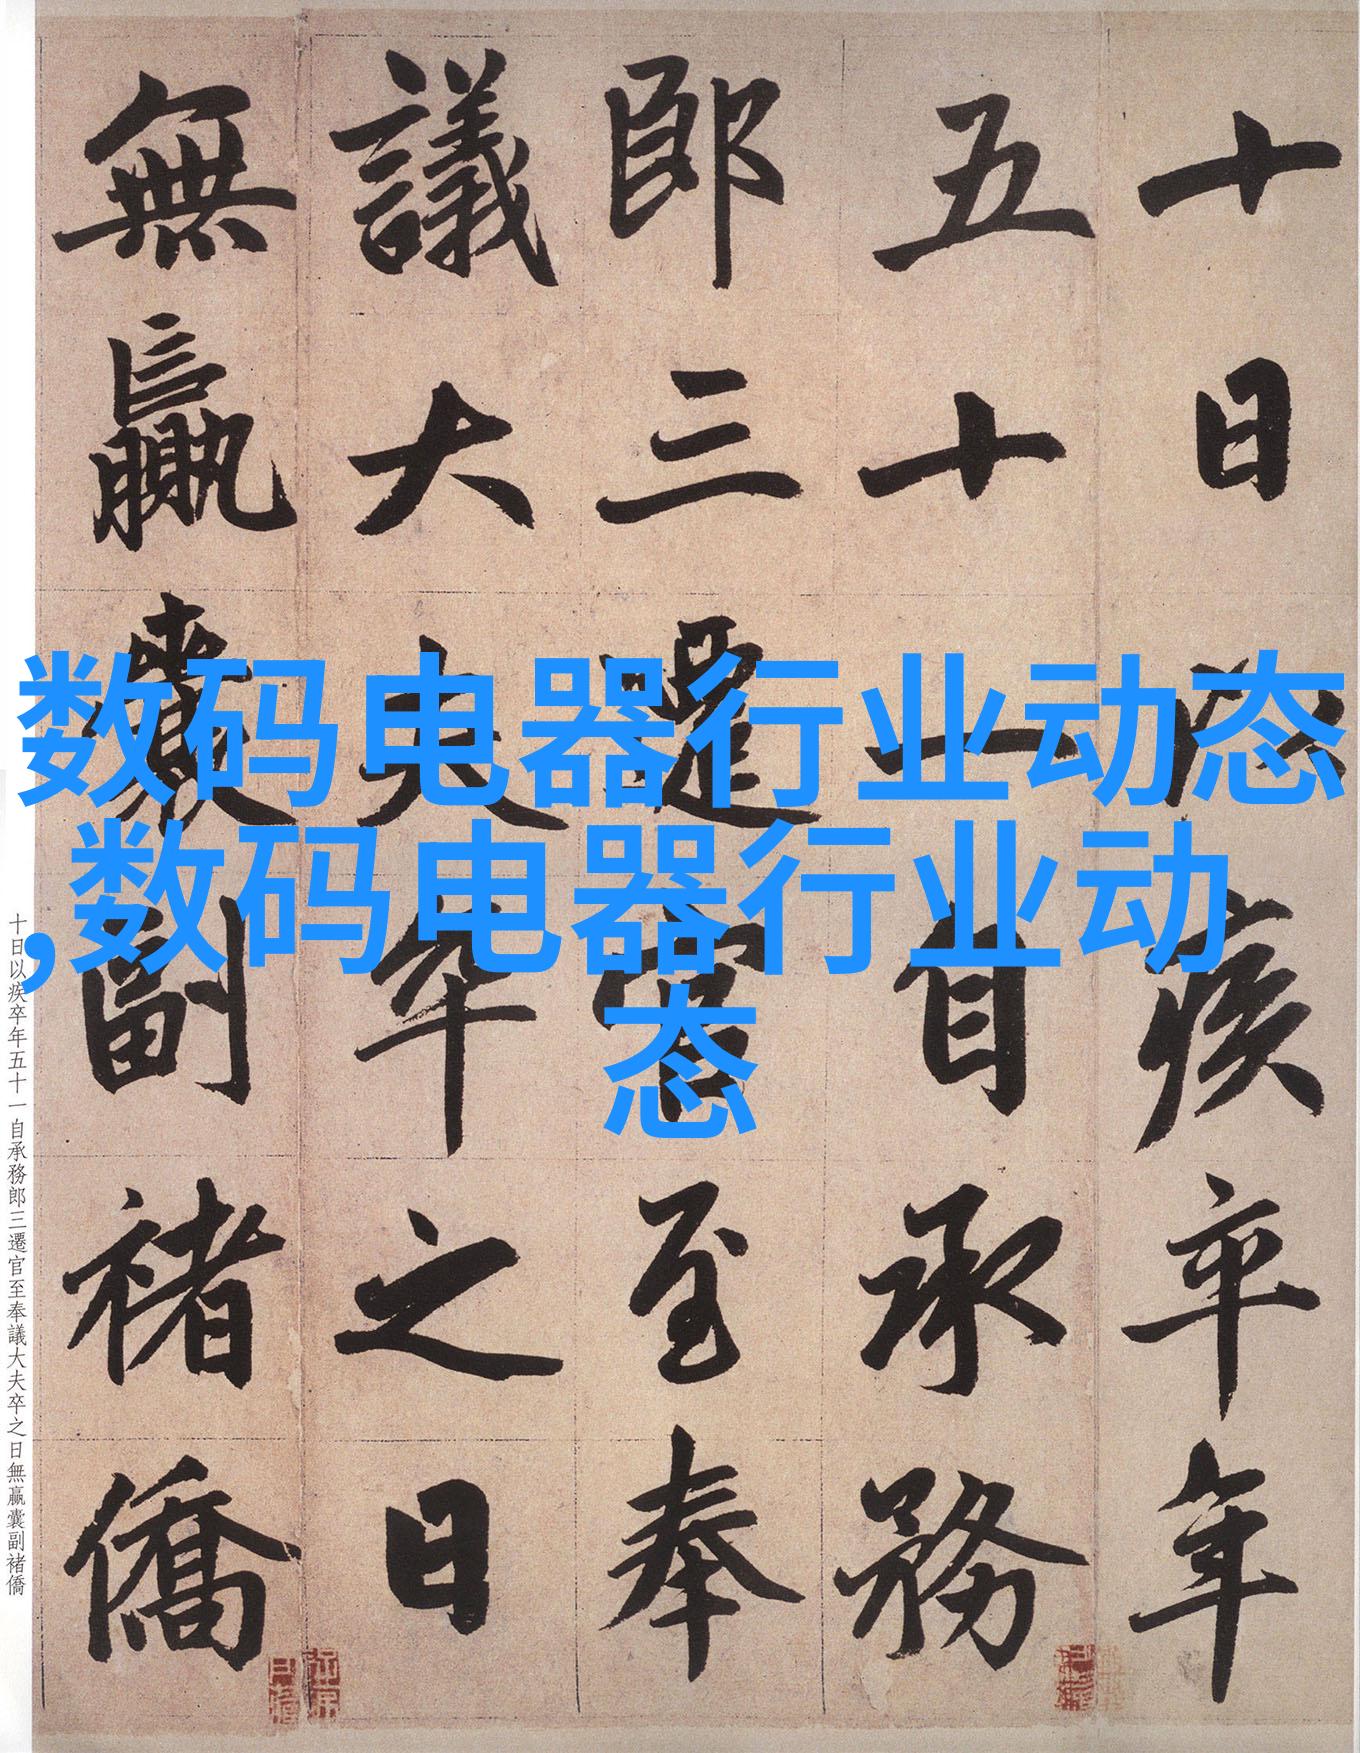 十日以疾卒年
五十一自承務
郎三遷官至奉
議大夫卒之日
無贏囊副褚僑
数码电器行业动态
,数码电器行业动
态
十日以疾卒年五十一自承務郎三遷官至奉議大夫卒之日無贏囊副褚僑